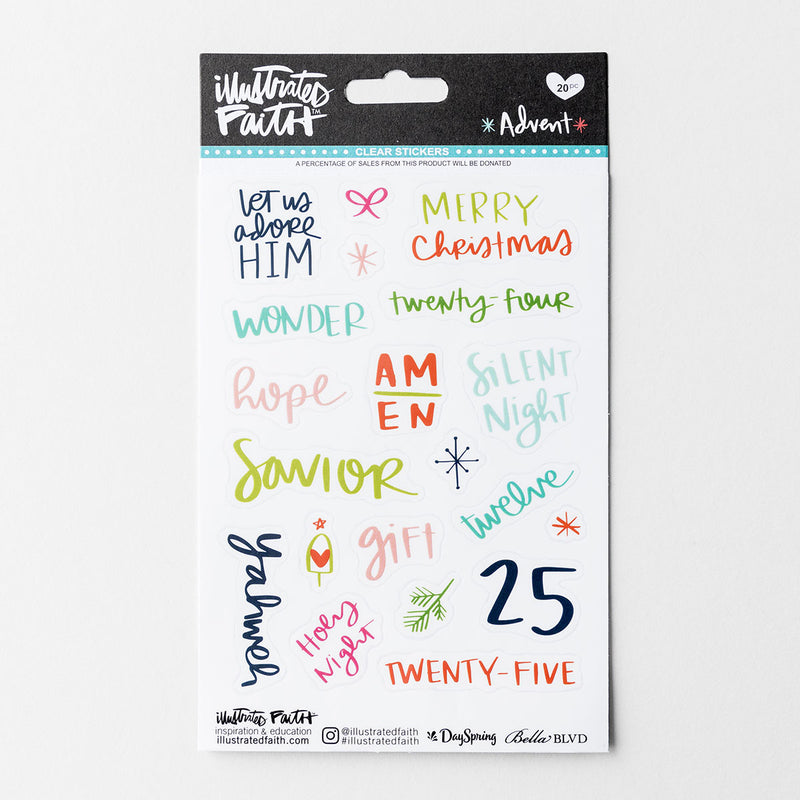 illustrated
FAITH™
20 pc
Advent
CLEAR STICKERS
A PERCENTAGE OF SALES FROM THIS PRODUCT WILL BE DONATED
let us
adore
HIM
MERRY
Christmas
WONDER
twenty-four
hope
AM
EN
SiLENT
Night
SAVIOR
twelve
Yahweh
gift
25
Holy
Night
TWENTY-FIVE
illustrated FAITH™
inspiration & education
illustratedfaith.com
@illustratedfaith
#illustratedfaith
DaySpring
Bella BLVD